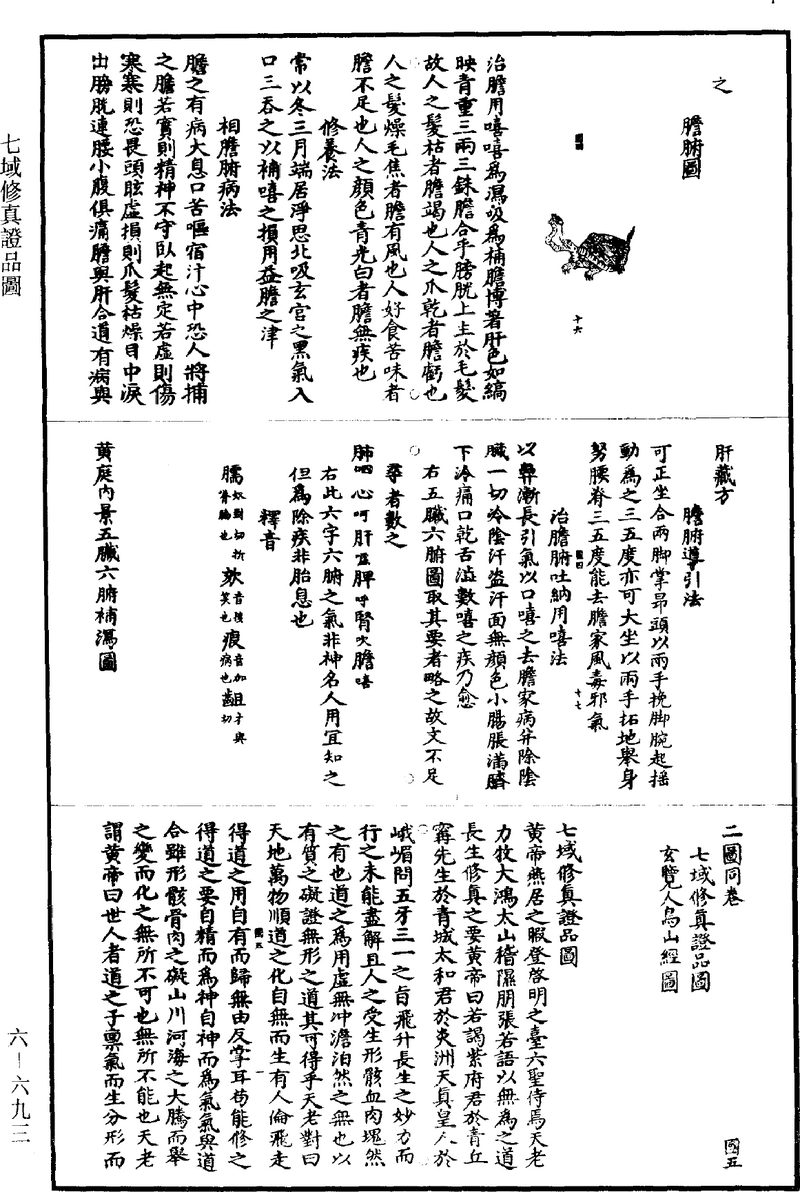 之
膽腑圖
圖四
十六
治膽用嘻嘻為瀉吸為補膽博著肝色如縞
映青重三兩三銖膽合乎膀胱上主於毛髮
故人之髮枯者膽竭也人之爪乾者膽虧也
人之髮燥毛焦者膽有風也人好食苦味者
膽不足也人之顏色青光白者膽無疾也
修養法
常以冬三月端居淨思北吸玄宮之黑氣入
口三吞之以補嘻之損用益膽之津
相膽腑病法
膽之有病大息口苦嘔宿汁心中恐人將捕
之膽若實則精神不守臥起無定若虛則傷
寒寒則恐畏頭眩虛損則爪髮枯燥目中淚
出膀胱連腰小腹俱痛膽與肝合道有病與
肝藏方
膽腑導引法
可正坐合兩脚掌昂頭以兩手挽脚腕起搖
動為之三五度亦可大坐以兩手拓地舉身
努腰脊三五度能去膽家風毒邪氣
圖四
十七
治膽腑吐納用嘻法
以鼻漸長引氣以口嘻之去膽家病并除陰
臟一切冷陰汗盜汗面無顏色小腸脹滿臍
下冷痛口乾舌澁數嘻之疾乃愈
右五臟六腑圖取其要者略之故文不足
尋者數之
肺呬心呵肝噓脾呼腎吹膽嘻
右此六字六腑之氣非神名人用宜知之
但為除疾非胎息也
釋音
臑奴到切折骨腸也欬音慨笑也瘕音加病也齟才與切
黃庭內景五臟六腑補瀉圖
二圖同卷
七域修真證品圖
玄覽人鳥山經圖
國五
七域修真證品圖
黃帝燕居之暇登啓明之臺六聖侍焉天老
力牧大鴻太山稽隰朋張若語以無為之道
長生修真之要黃帝曰若謁紫府君於青丘
甯先生於青城太和君於炎洲天真皇人於
峨嵋問五牙三一之旨飛升長生之妙力而
行之未能盡解且人之受生形骸血肉塊然
之有也道之為用虛無冲澹泊然之無也以
有質之礙證無形之道其可得乎天老對曰
天地萬物順道之化自無而生有人倫飛走
國五
一
得道之用自有而歸無由反掌耳苟能修之
得道之要自精而為神自神而為氣氣與道
合雖形骸骨肉之礙山川河海之大騰而舉
之變而化之無所不可也無所不能也天老
謂黃帝曰世人者道之子稟氣而生分形而
七域修真證品圖
六—六九三